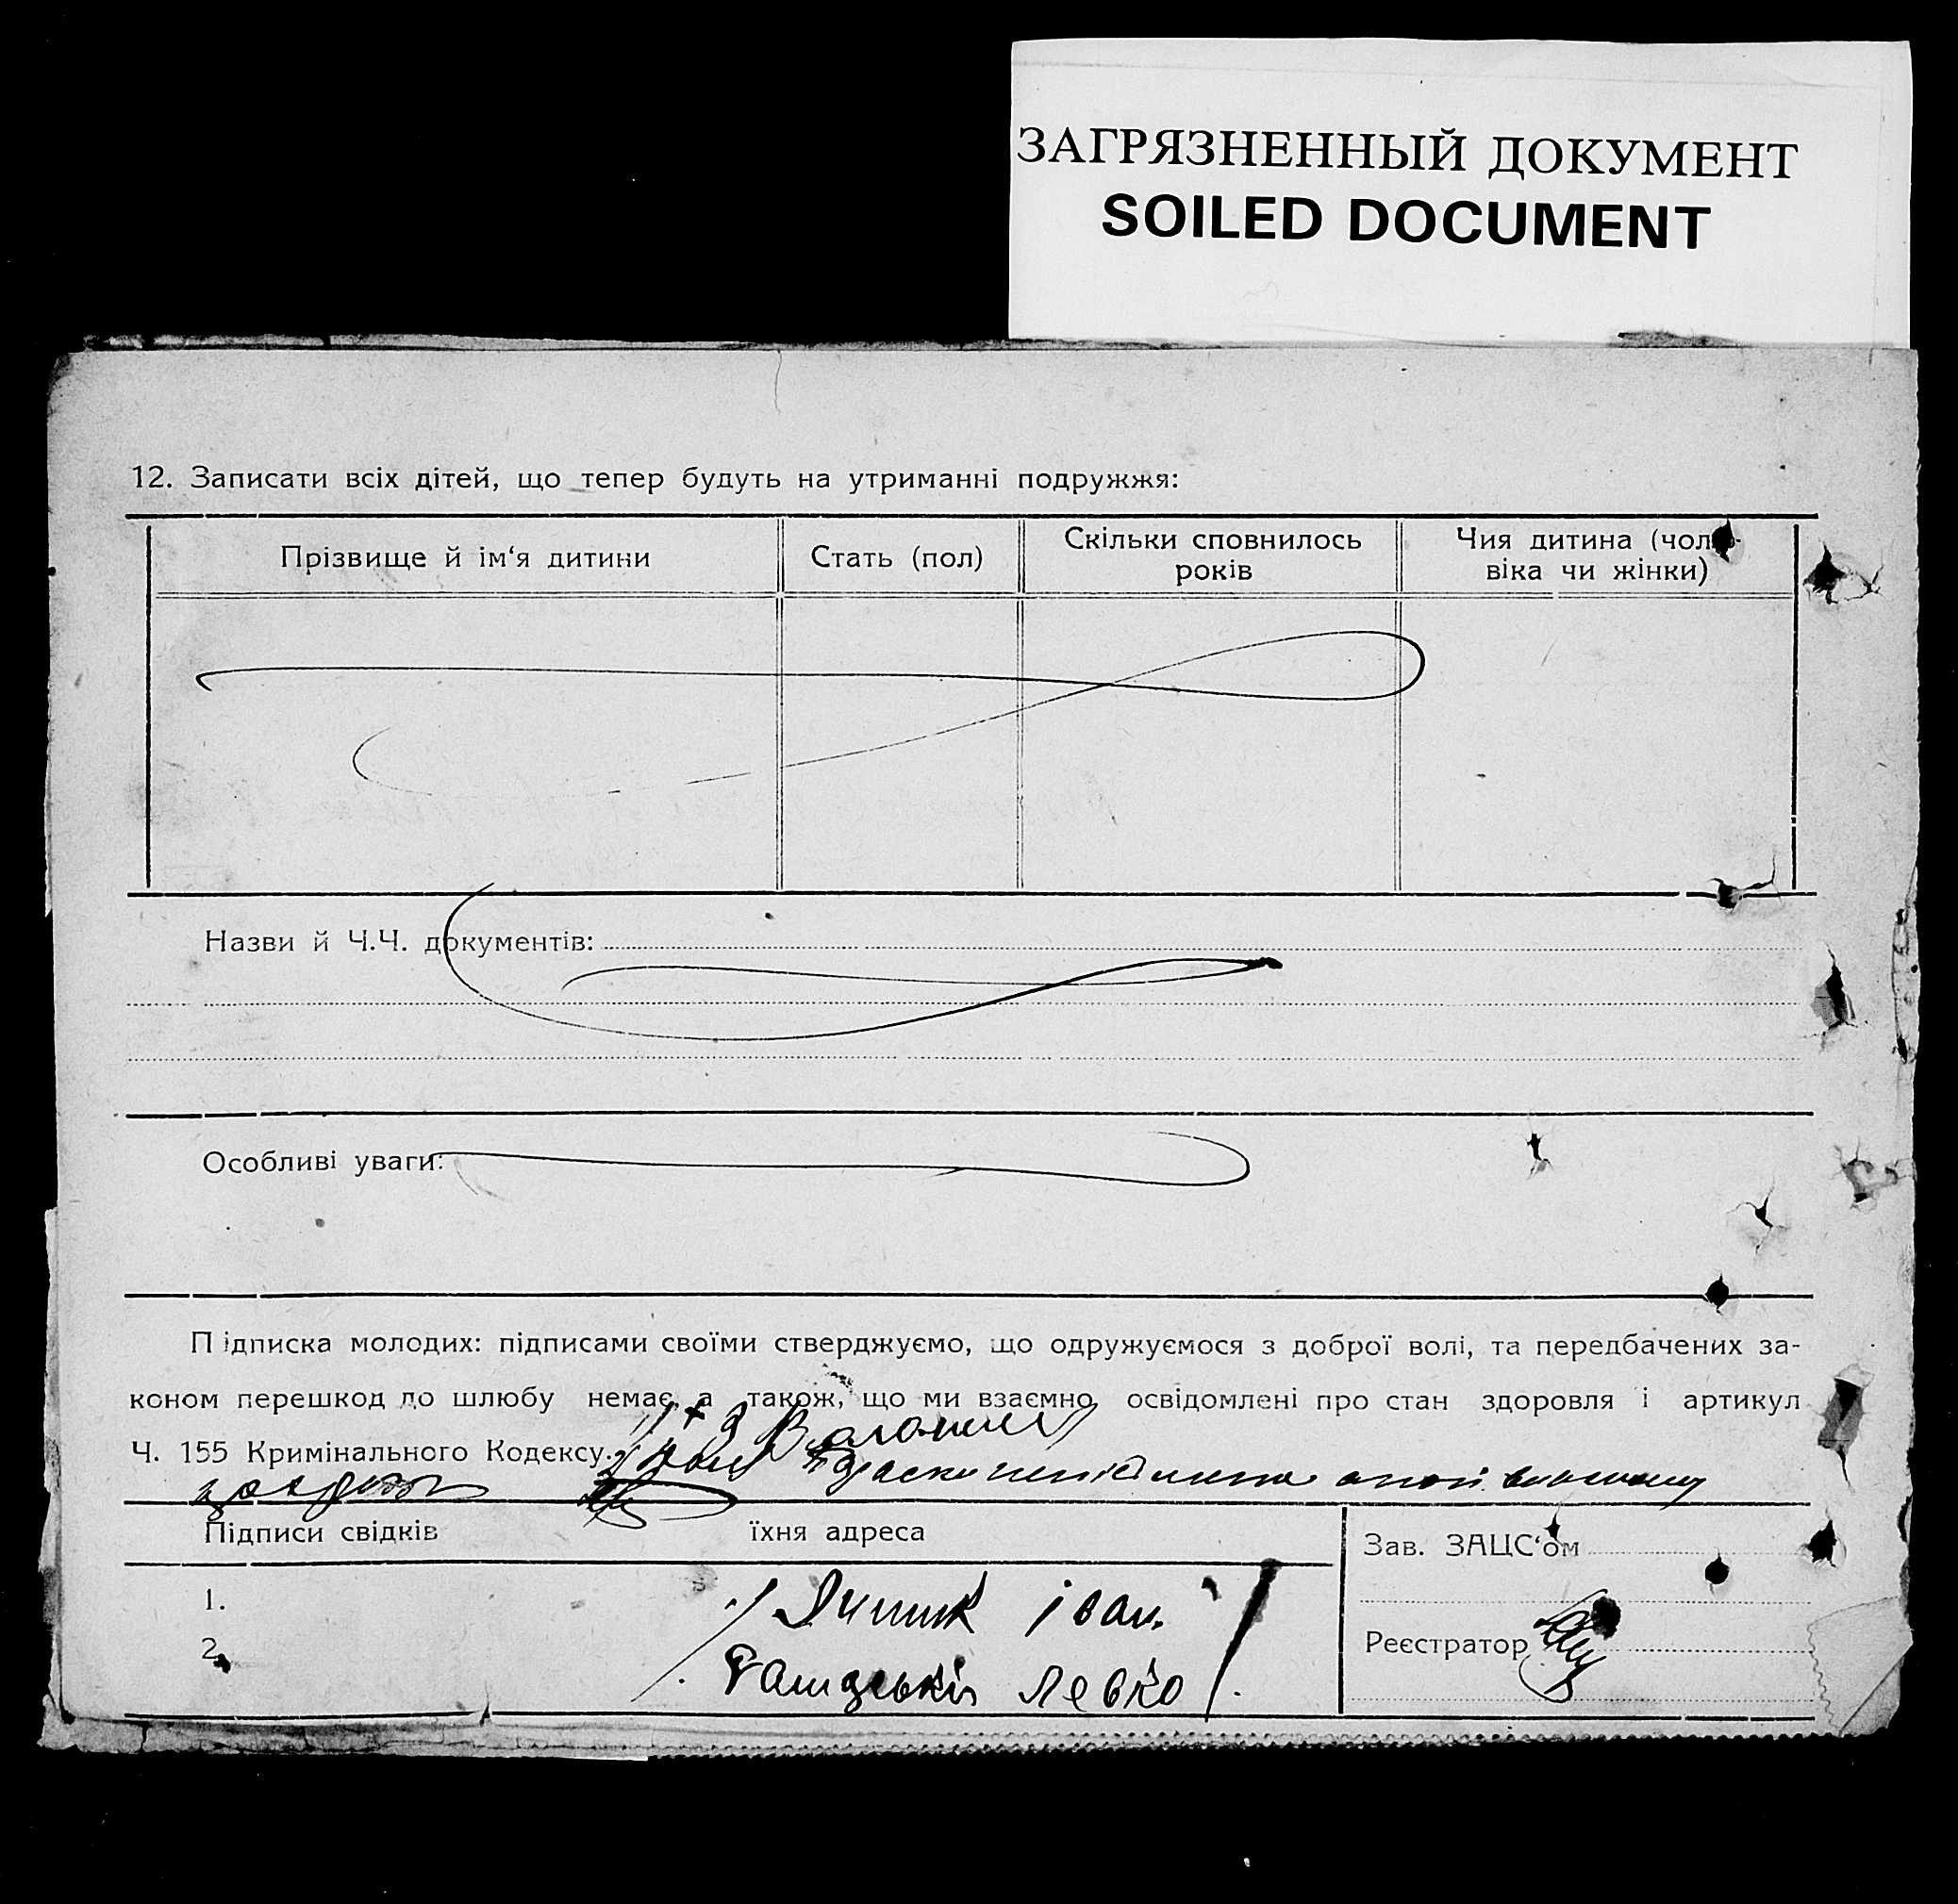 ЗАГРЯЗНЕННЫЙ ДОКУМЕНТ
SOILED DOCUMENT
12. Записати всіх дітей, що тепер будуть на утриманні подружжя:
Прізвище й ім‘я дитини
Стать (пол)
Скільки сповнилось
років
Чия дитина (чоло-
віка чи жінки)
Назви й Ч.Ч. документів:
Особливі уваги:
Підписка молодих: підписами своїми стверджуємо, що одружуємося з доброї волі, та передбачених за-
коном перешкод до шлюбу немає, а також, що ми взаємно освідомлені про стан здоровля і артикул
Ч. 155 Кримінального Кодексу.
Підписи свідків
їхня адреса
Зав. ЗАЦС‘ом
1.
Іван
2.
Левко
Реєстратор